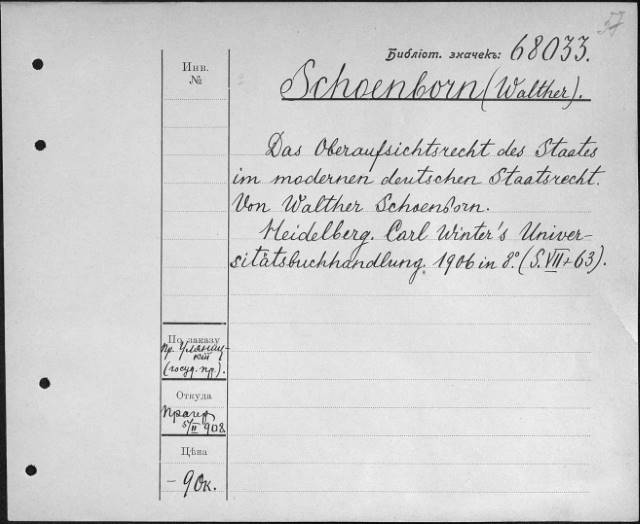 37
Библіот. значекъ: 68033.
Инв.
№
Schoenborn (Walther).
Das Oberaufsichtsrecht des Staates
im modernen deutschen Staatsrecht.
Von Walther Schoenborn.
Heidelberg. Carl Winter's Univer-
sitätsbuchhandlung. 1906 in 8º. (S. VII + 63).
По заказу
пр. Уляниц-
кій
(госуд. пр.).
Откуда
5/II 908.
Цѣна
- 90к.